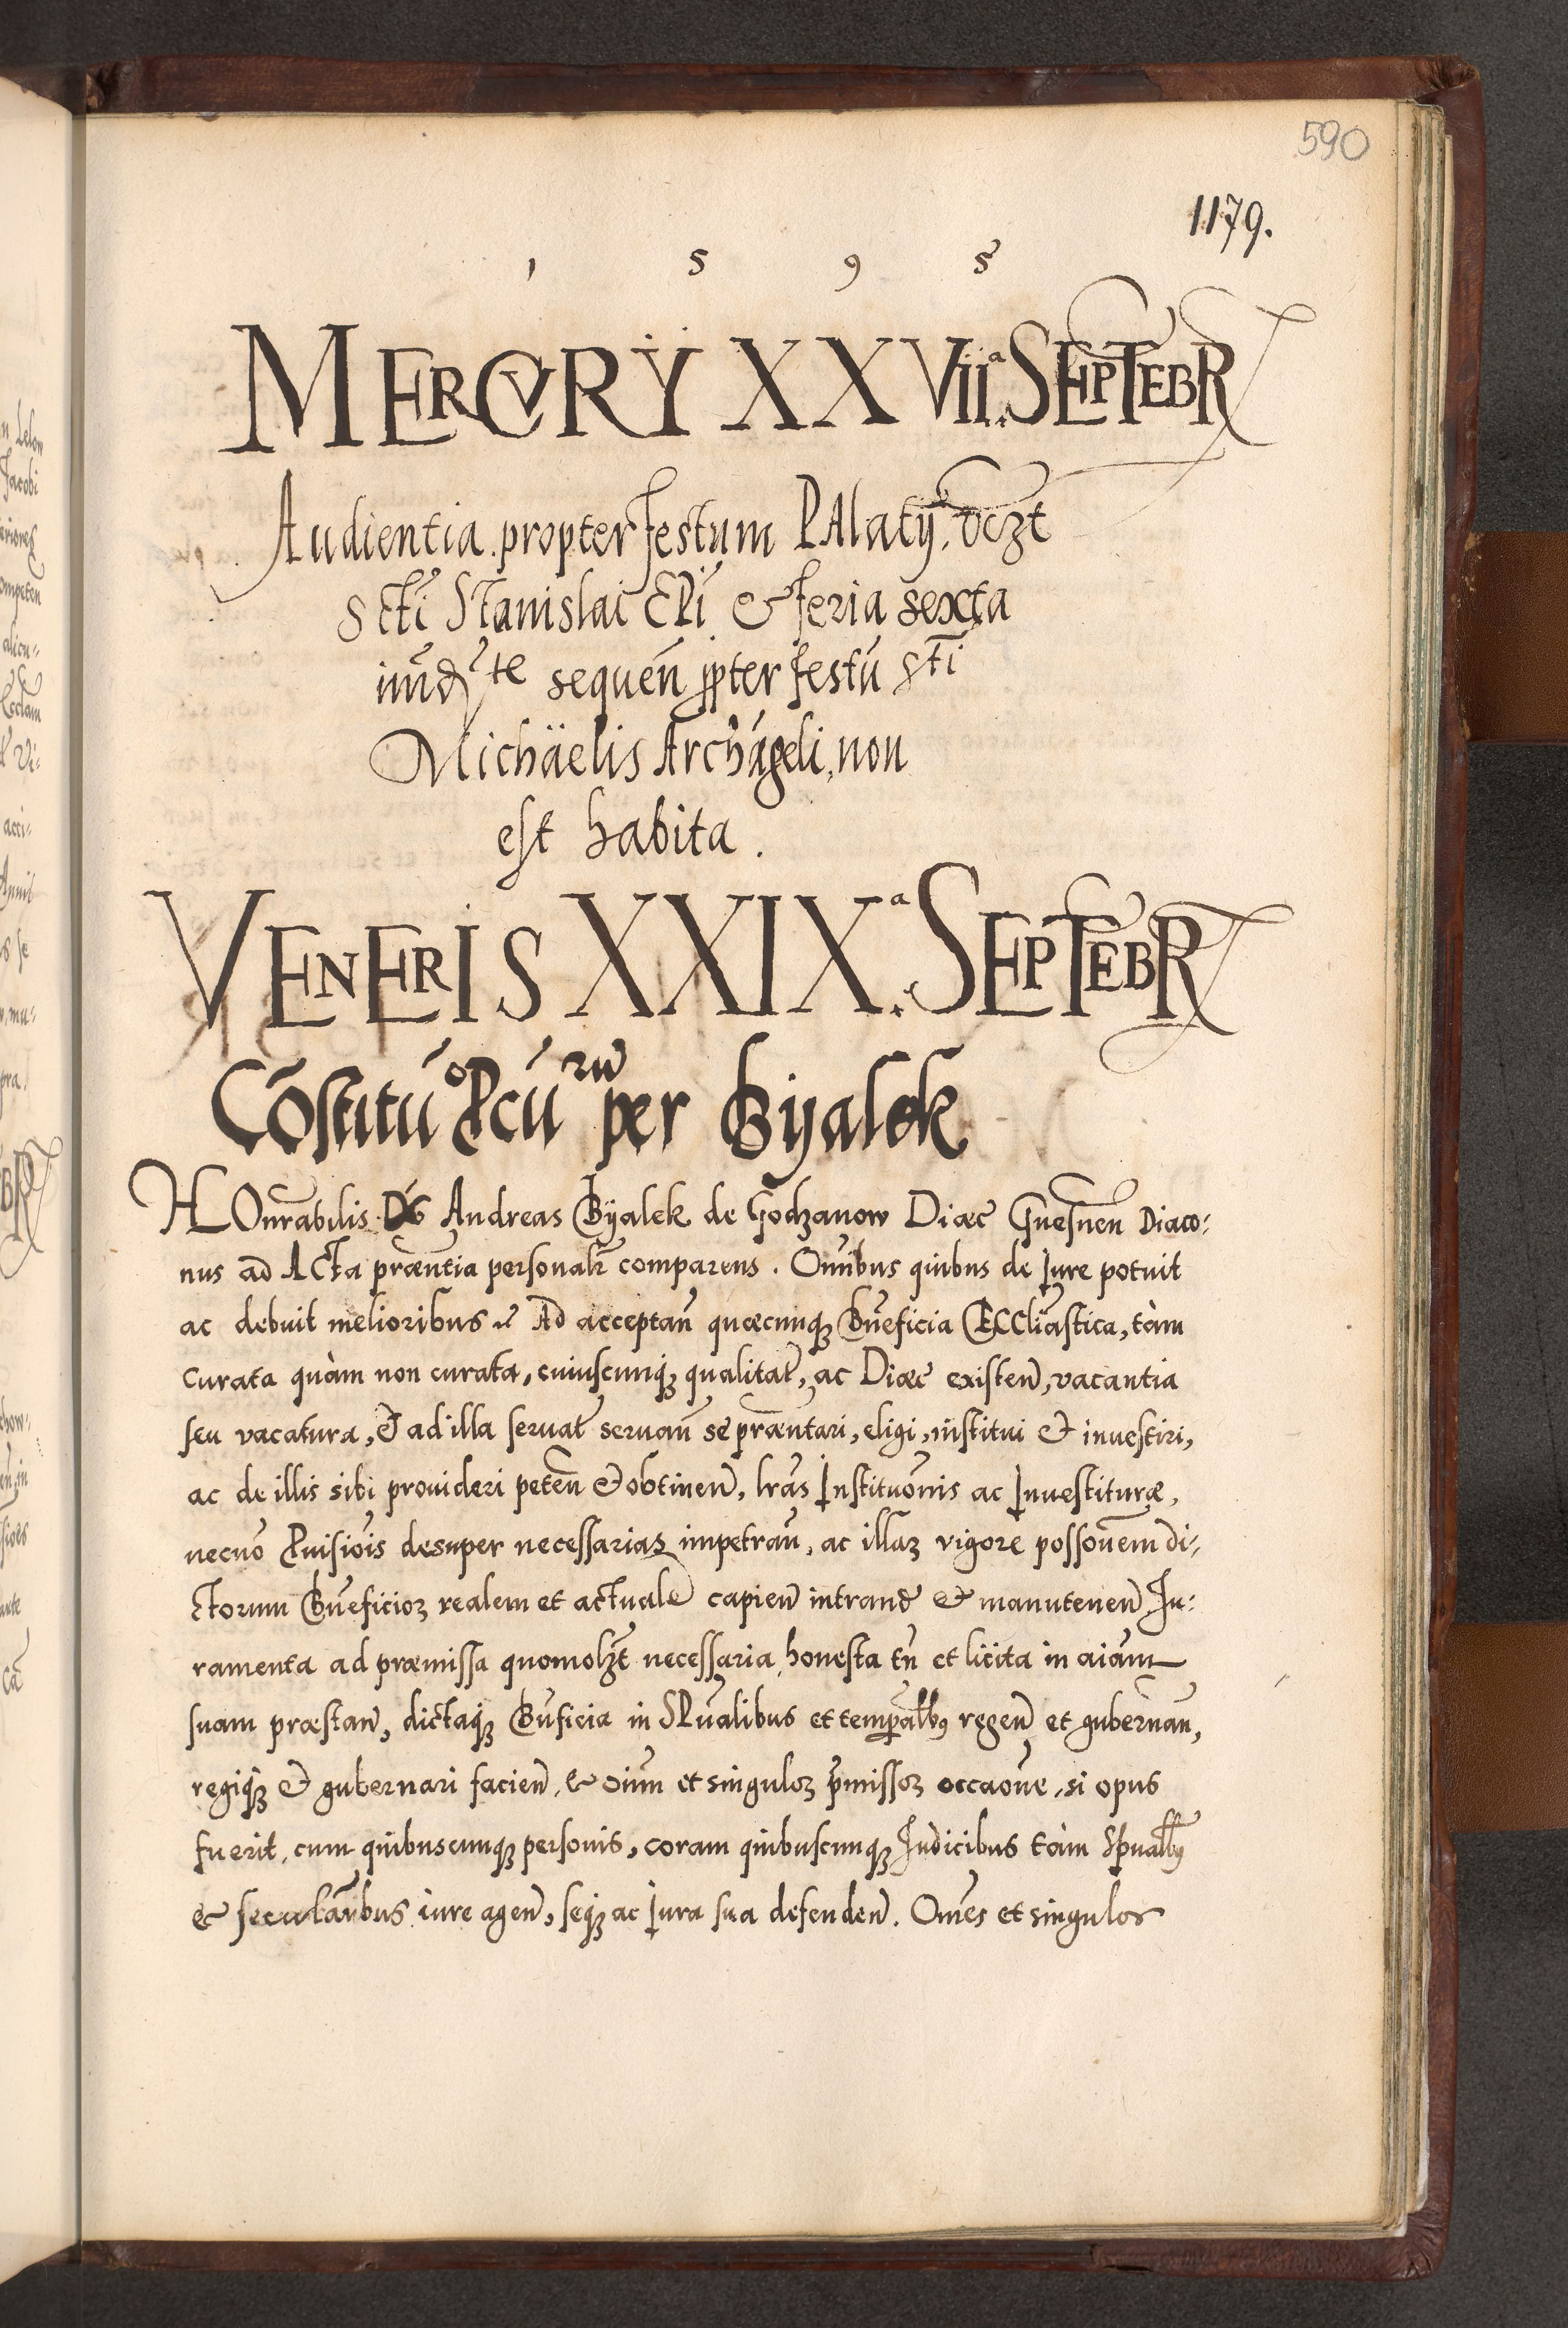 590
1179.
1 5 9 5
MERCVRŸ XXVIIª SEPTEBR
Audientia propter festum PAlatÿ, vczt
Scti Stanislai EPi & feria sexta
im̄dte sequeñ ppter festū Sti
Michäelis Archāgeli, non
est habita.
VENERIS XXIXª SEPTEBR
Cōstitūo Pcū rū per Byalek
HOnrabilis Ds Andreas Bÿalek de Godzanow Diæc Gnesneñ Diaco:
nus ad ACta præntia personalr comparens. Omibus quibus de Iure potuit
ac debuit melioribus Ad acceptañ quæcunqȝ Bñeficia ECCliastica, tàm
curata quàm non curata, cuiuscunqȝ qualitat, ac Diæc existeñ, vacantia
seu vacatura, & ad illa servat servañ se præntari, eligi, institui & investiri,
ac de illis sibi prouideri peteñ & obtineñ, lras Instituōnis ac Inuestituræ,
necnō Puisiōis desuper necessarias impetrañ, ac illaȝ vigore possōnem di,
ctorum Bñeficioȝ realem et actualē capieñ intrand & manuteneñ Iu:
ramenta ad præmissa quomolȝt necessaria, honesta tñ et licita in aīam
suam præstañ, dictaqȝ Bñficia in SPūalibus et tempalbȝ regeñ et gubernañ,
regiqȝ & gubernari facieñ, & oium et singuloȝ pmissoȝ occaōne, si opus
fuerit, cum quibuscunqȝ personis, coram quibuscunqȝ Iudicibus tàm Spualbȝ
& seculāribus iure ageñ, seqȝ ac Iura sua defendeñ. Omēs et singulos